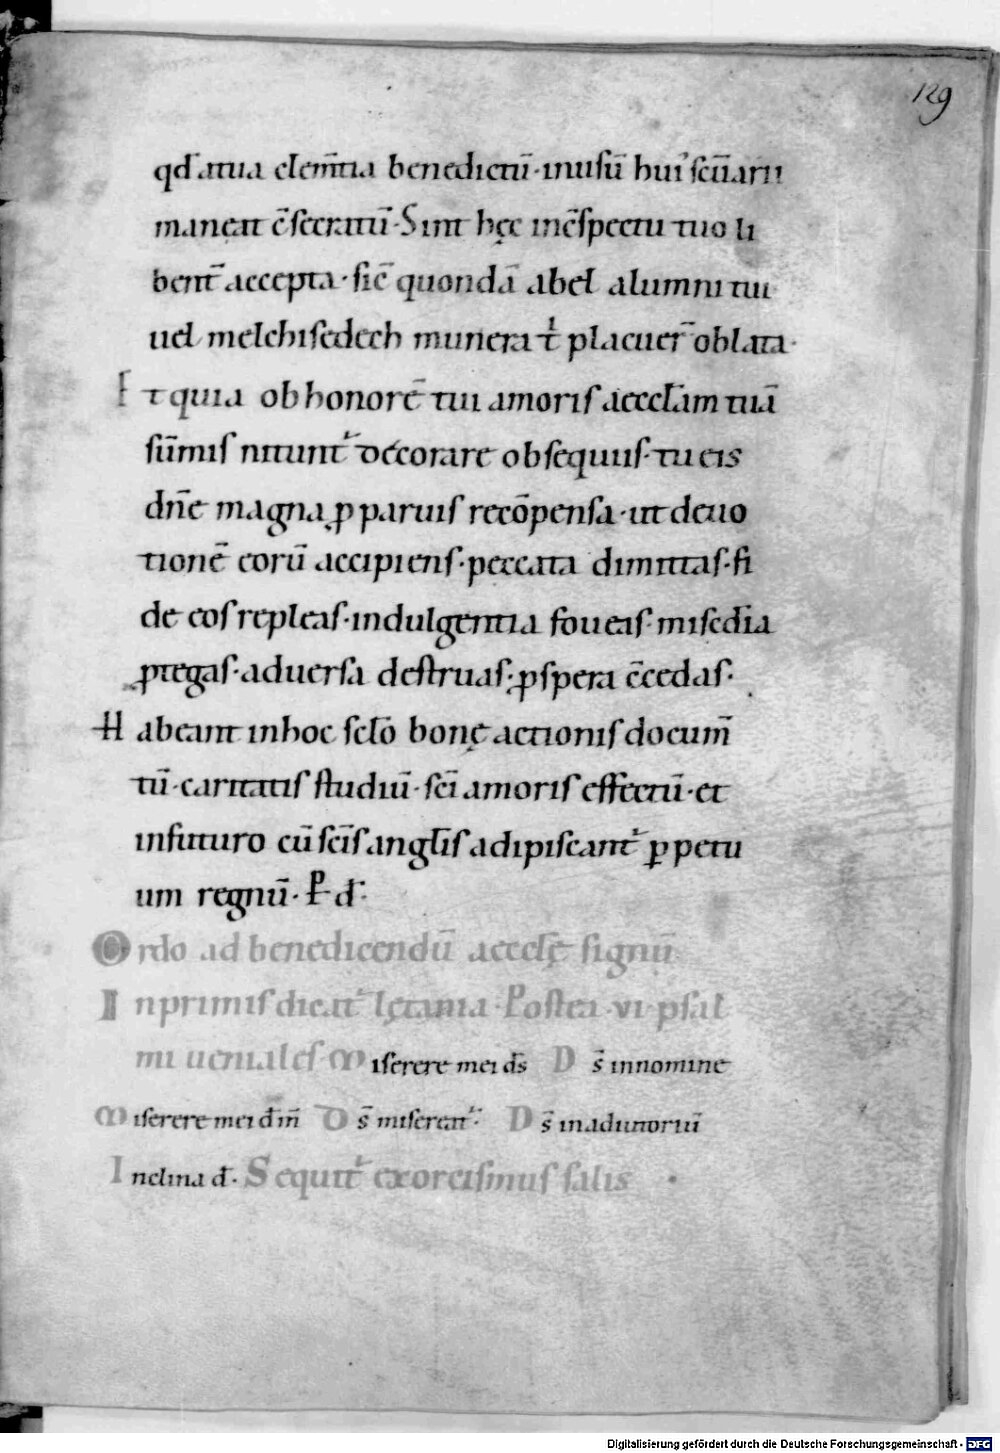 129
qd̄ atua clem̄tia benedictū·inusū hui' scūarii
maneat c̄secratū·Sint hęc inc̄spectu tuo li
bent̄ accepta·sic̄ quondā abel alumni tui
uel melchisedech munera t̄ placuer̄ oblata·
Et quia ob honorē tui amoris aecclām tuā
sūmis nitunt̄ decorare obsequiis·tu eis
dn̄e magna ꝓ paruis recōpensa·ut deuo
tionē eorū accipiens·peccata dimittas·fi
de eos repleas·indulgentia foueas·misc̄dia
ꝓtegas·aduersa destruas·ꝓspera c̄cedas·
Habeant inhoc sclō bonę actionis docum̄
tū·caritatis studiū·sc̄i amoris effectū·et
infuturo cū sc̄is angl̄is adipiscant̄ ꝑpetu
um regnū·P d̄·
Ordo ad benedicendū aecclę signū
Inprimis dicat̄ lętania·Postea·vi·psal
mi ueniales·Miserere mei ds̄ Ds̄ innomine
Miserere mei dm̄ Ds̄ misereat̄· Ds̄ inadiutoriū
Inclina d̄·Sequit̄ exorcismus salis
Digitalisierung gefördert durch die Deutsche Forschungsgemeinschaft - DFG